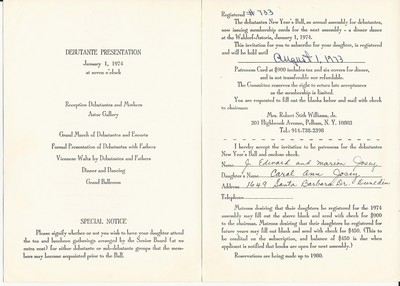 DEBUTANTE PRESENTATION
January 1, 1974
at seven o'clock
Reception Debutantes and Mothers
Astor Gallery
Grand March of Debutantes and Escorts
Formal Presentation of Debutantes with Fathers
Viennese Waltz by Debutantes and Fathers
Dinner and Dancing
Grand Ballroom
SPECIAL NOTICE
Please signify whether or not you wish to have your daughter attend
the tea and luncheon gatherings arranged by the Senior Board (at no
extra cost) for either debutante or sub-debutante groups that the mem-
bers may become acquainted prior to the Ball.
Registered # 733
The debutantes New Year's Ball, an annual assembly for debutantes,
now issuing membership cards for the next assembly - a dinner dance
at the Waldorf-Astoria, January 1, 1974.
This invitation for you to subscribe for your daughter, is registered
and will be held until
August 1, 1973
Patroness Card at $900 includes tea and six covers for dinner,
and is not transferable or refundable.
The Committee reserves the right to return late acceptances
as the membership is limited.
You are requested to fill out the blanks below and mail with check
to chairman:
Mrs. Robert Stith Williams, Jr.
201 Highbrook Avenue, Pelham, N. Y. 10803
Tel.: 914-738-2398
I hereby accept the invitation to be patroness for the debutantes
New Year's Ball and enclose check.
Name J. Edward and Marion Josey
Daughter's Name Carol Ann Josey
Address 1649 Santa Barbara Dr. Dunedin
Telephone
Matrons desiring that their daughters be registered for the 1974
assembly may fill out the above blank and send with check for $900
to the chairman. Matrons desiring that their daughters be registered for
future years may fill out blank and send with check for $450. (This to
be credited on the subscription, and balance of $450 is due when
applicant is notified that books are open for next assembly.)
Reservations are being made up to 1980.